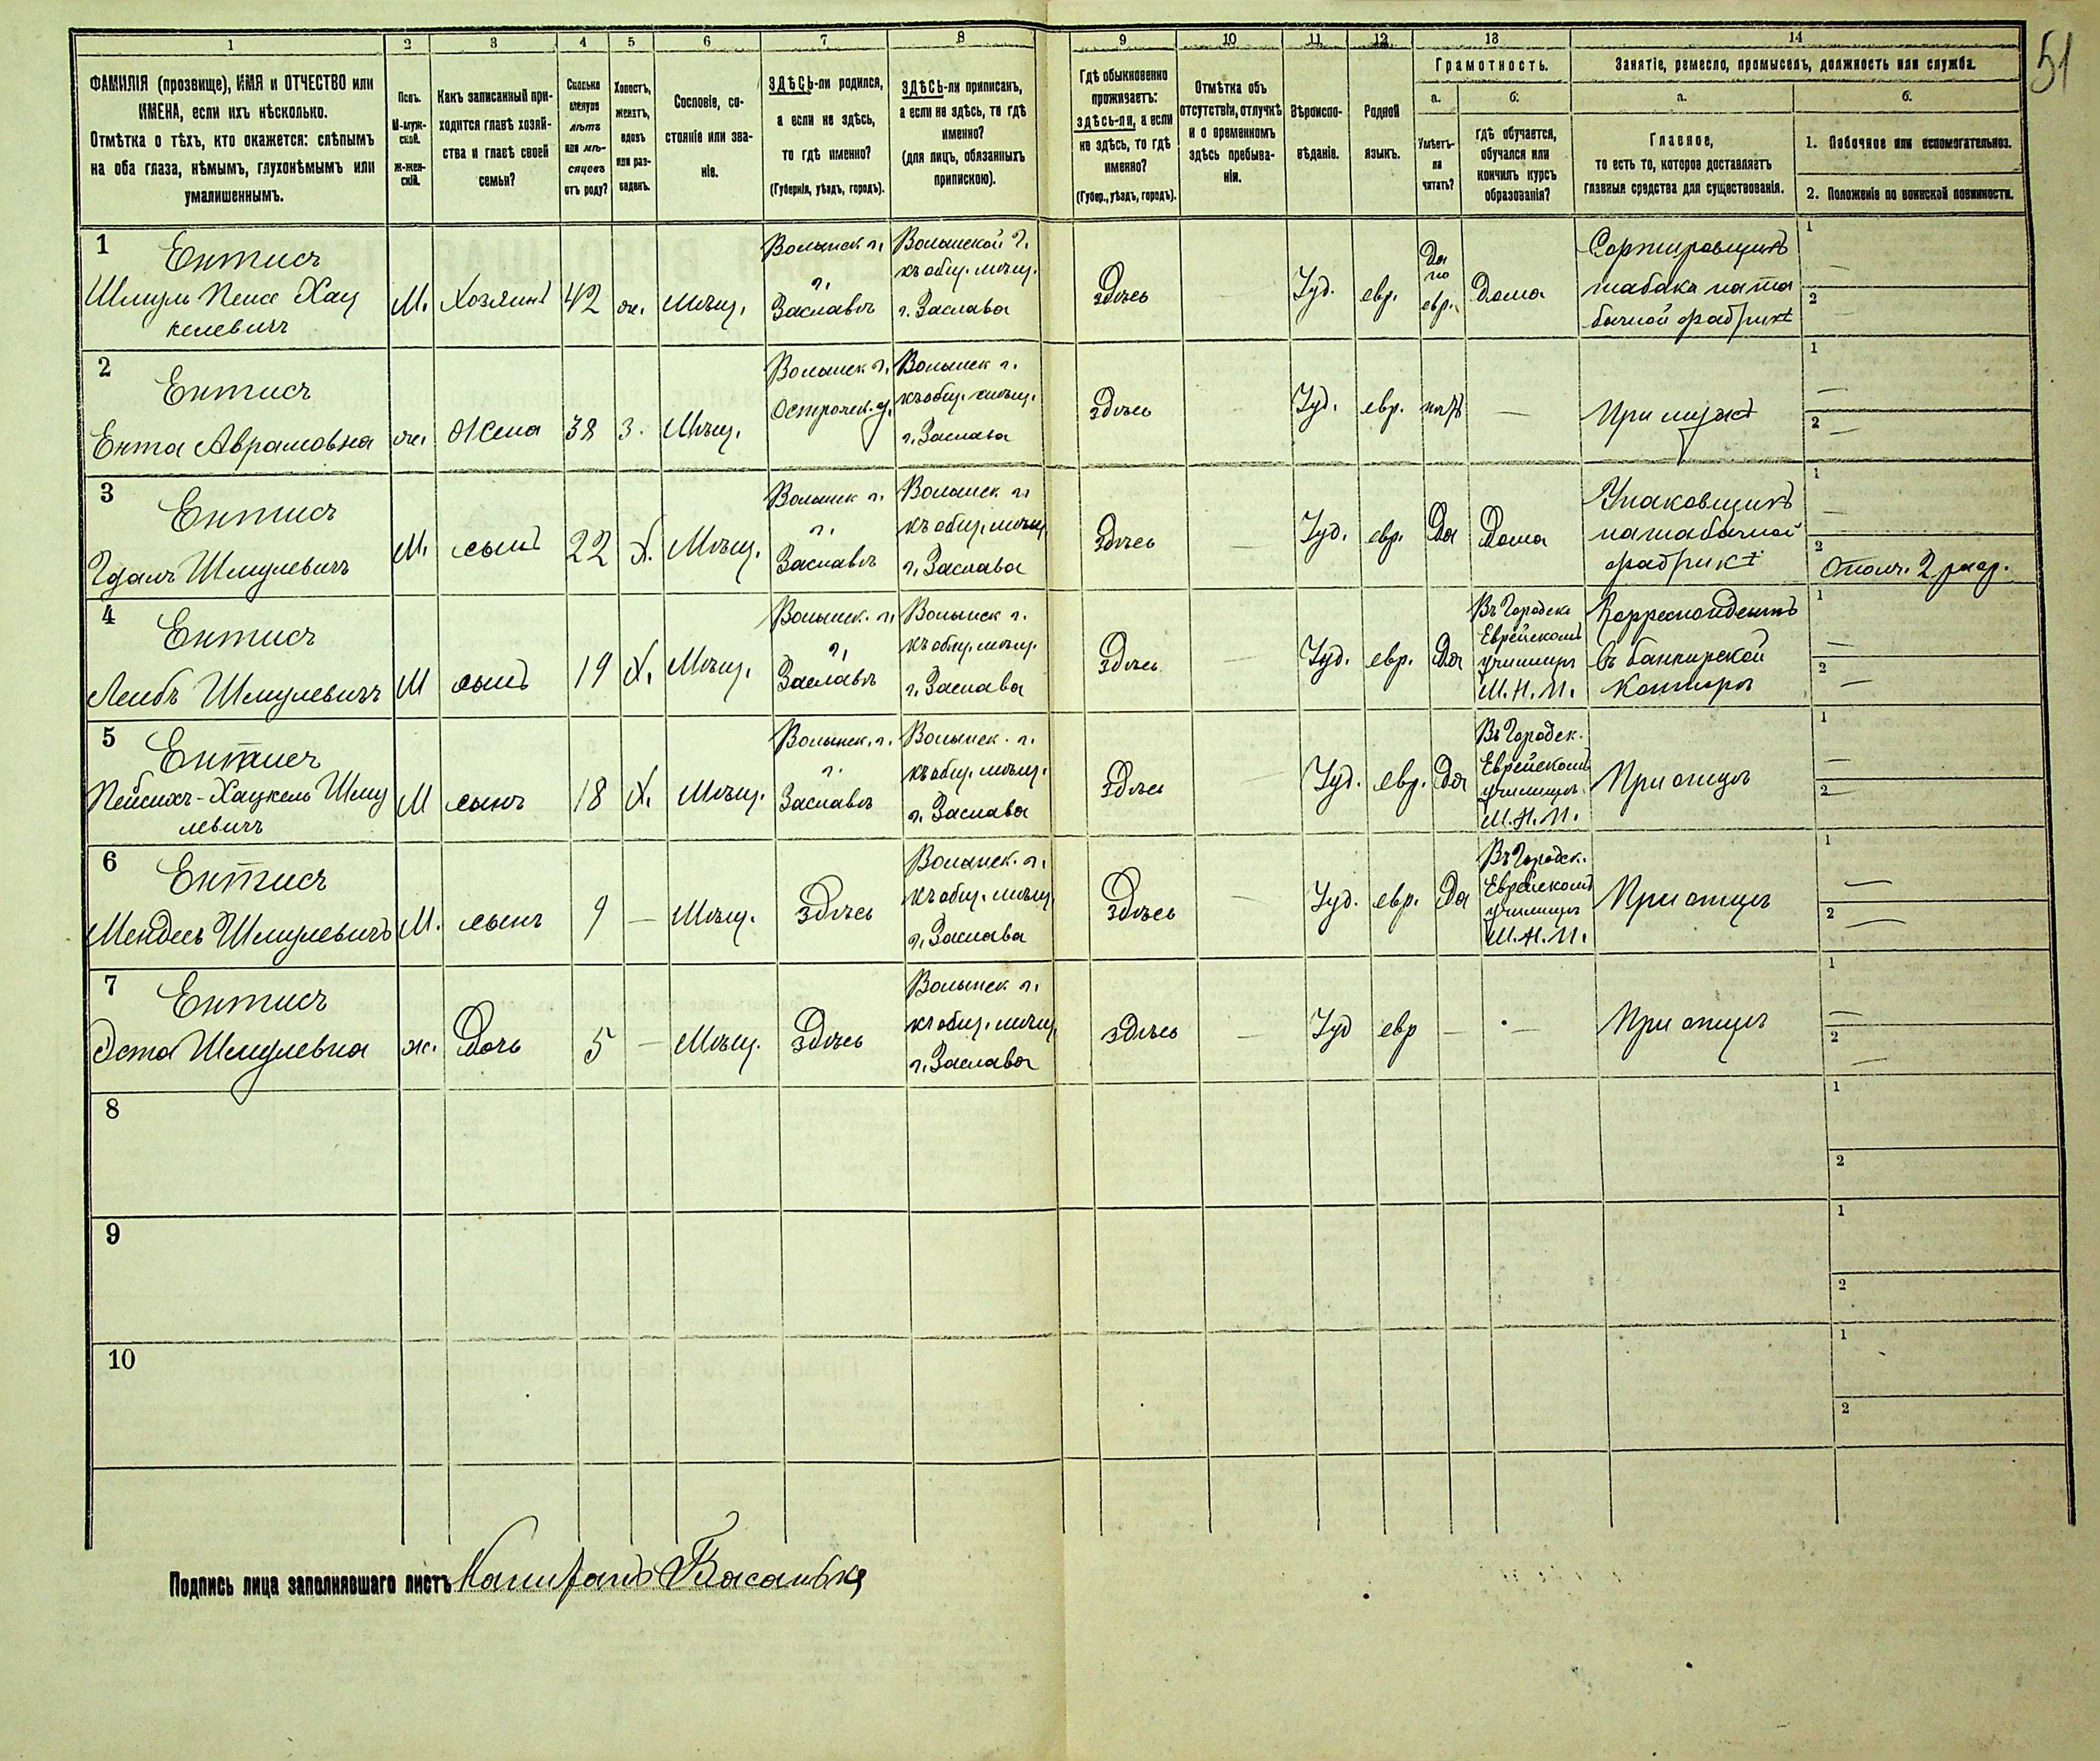 51
1 2 3 4 5 6 7 8 9 10 11 12 13 14
ФАМИЛІЯ (прозвище), ИМЯ и ОТЧЕСТВО или
ИМЕНА, если ихъ нѣсколько.
Отмѣтка о тѣхъ, кто окажется: слѣпымъ
на оба глаза, нѣмымъ, глухонѣмымъ или
умалишеннымъ.
Полъ.
М-муж-
ской.
Ж-жен-
скій.
Какъ записанный при-
ходится главѣ хозяй-
ства и главѣ своей
семьи?
Сколько
минуло
лѣтъ
или мѣ-
сяцевъ
отъ роду?
Холостъ,
женатъ,
вдовъ
или раз-
веденъ.
Сословіе, со-
стояніе или зва-
ніе.
ЗДѢСЬ-ли родился,
а если не здѣсь,
то гдѣ именно?
(Губернія, уѣздъ, городъ).
ЗДѢСЬ-ли приписанъ,
а если не здѣсь, то гдѣ
именно?
(для лицъ, обязанныхъ
припискою).
Гдѣ обыкновенно
проживаетъ:
здѣсь-ли, а если
не здѣсь, то гдѣ
именно?
(Губер., уѣздъ, городъ).
Отмѣтка объ
отсутствіи, отлучкѣ
и о временномъ
здѣсь пребыва-
ніи.
Вѣроиспо-
вѣданіе.
Родной
языкъ.
Грамотность.
а.
Умѣетъ-
ли
читать?
б.
гдѣ обучается,
обучался или
кончилъ курсъ
образованія?
Занятіе, ремесло, промыселъ, должность или служба.
а.
Главное,
то есть то, которое доставляетъ
главныя средства для существованія.
б.
1. Побочное или вспомогательное.
2. Положеніе по воинской повинности.
1
Ентис
Шмуль Пейсе Хац
келевичъ
М.
Хозяинъ
42
ж.
Мѣщ.
Волынск г.
г.
Заславѣ
Волынской г.
къ общ. мѣщ.
г. Заслава
Здѣсь
Іуд.
евр.
Да
по
евр.
Дома
Сортировщикъ
табака на та
бачной фабрикѣ
1
2
2
Ентис
Ента Аврамовна
ж.
Жена
38
З.
Мѣщ.
Волынск г.
Острожск. у.
Волынск г.
къ общ. мѣщ.
г. Заслава
Здѣсь
Іуд.
евр.
нѣтъ
—
При мужѣ
1
2
3
Ентис
Шмулевичъ
М.
сынъ
22
Х.
Мѣщ.
Волынск г.
г.
Заславѣ
Волынск г.
къ общ. мѣщ
г. Заслава
Здѣсь
Іуд.
евр.
Да
Дома
Упаковщикъ
на табачной
фабрикѣ
1
2
Ополч. 2 разр.
4
Ентис
Лейбъ Шмулевичъ
М
сынъ
19
Х.
Мѣщ.
Волынск. г.
г.
Заславѣ
Волынск г.
къ общ. мѣщ.
г. Заслава
Здѣсь
Іуд.
евр.
Да
Въ Городск
Еврейскомъ
училищѣ
М.Н.П.
Корреспондентъ
въ банкирской
конторѣ
1
2
5
Ентис
Пейсихъ-Хацкель Шму
левичъ
М
сынъ
18
Х.
Мѣщ.
Волынск. г.
г.
Заславѣ
Волынск. г.
къ общ. мѣщ.
г. Заслава
Здѣсь
Іуд.
евр.
Да
Въ Городск.
Еврейскомъ
училищѣ
М.Н.П.
При отцѣ
1
2
6
Ентис
Мендель Шмулевичъ
М.
сынъ
9
—
Мѣщ.
Здѣсь
Волынск. г.
къ общ. мѣщ.
г. Заслава
Здѣсь
Іуд.
евр.
Да
Въ Городск.
Еврейскомъ
училищѣ
М.Н.П.
При отцѣ
1
2
7
Ентис
Эста Шмулевна
ж.
Дочь
5
—
Мѣщ.
Здѣсь
Волынск г.
къ общ. мѣщ
г. Заслава
Здѣсь
Іуд
евр
—
—
При отцѣ
1
2
8
1
2
9
1
2
10
1
2
Подпись лица заполнявшаго листъ